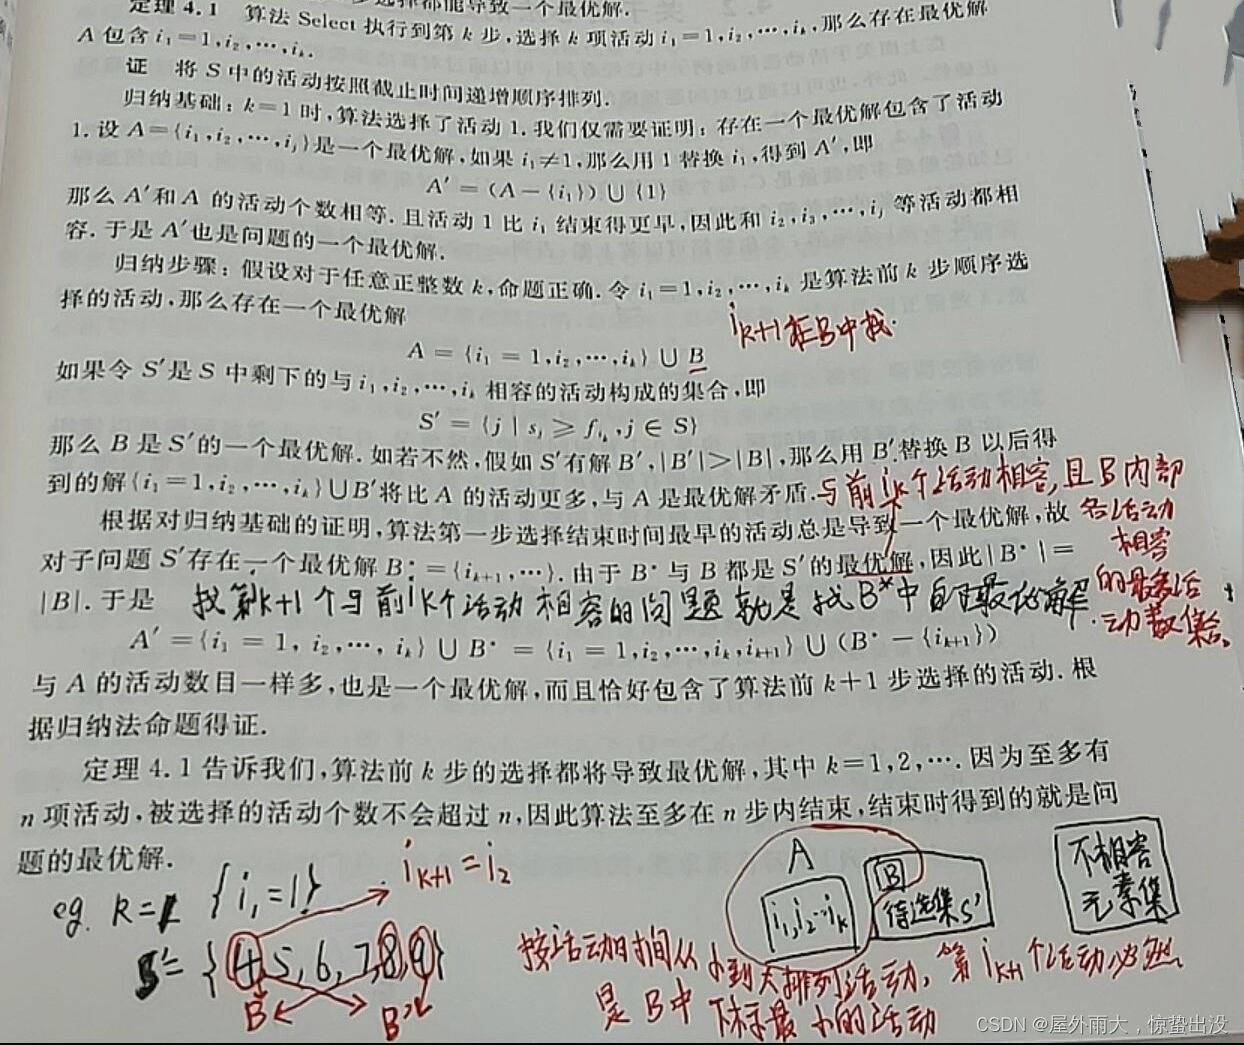 定理 4.1 算法 Select 执行到第 k 步,选择 k 项活动 i₁=1,i₂,⋯,iₖ,那么存在最优解
A 包含 i₁=1,i₂,⋯,iₖ.
证 将 S 中的活动按照截止时间递增顺序排列.
归纳基础：k=1 时,算法选择了活动 1.我们仅需要证明：存在一个最优解包含了活动
1.设 A={i₁,i₂,⋯,iⱼ}是一个最优解,如果 i₁≠1,那么用 1 替换 i₁,得到 A′,即
A′=(A−{i₁})∪{1}
那么 A′和 A 的活动个数相等.且活动 1 比 i₁ 结束得更早,因此和 i₂,i₃,⋯,iⱼ 等活动都相
容.于是 A′也是问题的一个最优解.
归纳步骤：假设对于任意正整数 k,命题正确.令 i₁=1,i₂,⋯,iₖ 是算法前 k 步顺序选
择的活动,那么存在一个最优解
iₖ₊₁在B中找.
A={i₁=1,i₂,⋯,iₖ}∪B
如果令 S′是 S 中剩下的与 i₁,i₂,⋯,iₖ 相容的活动构成的集合,即
S′={j|sⱼ⩾f_{iₖ},j∈S}
那么 B 是 S′的一个最优解.如若不然,假如 S′有解 B′,|B′|>|B|,那么用 B′替换 B 以后得
到的解{i₁=1,i₂,⋯,iₖ}∪B′将比 A 的活动更多,与 A 是最优解矛盾.
与前iₖ个活动相容,且B内部
各活动
相容
的最多活
动数集合。
根据对归纳基础的证明,算法第一步选择结束时间最早的活动总是导致一个最优解,故
对子问题 S′存在一个最优解 B*={iₖ₊₁,⋯}.由于 B*与 B 都是 S′的最优解,因此|B*|=
|B|.于是
找第k+1个与前iₖ个活动相容的问题就是找B*中的最优解.
A′={i₁=1,i₂,⋯,iₖ}∪B*={i₁=1,i₂,⋯,iₖ,iₖ₊₁}∪(B*−{iₖ₊₁})
与 A 的活动数目一样多,也是一个最优解,而且恰好包含了算法前 k+1 步选择的活动.根
据归纳法命题得证.
定理 4.1 告诉我们,算法前 k 步的选择都将导致最优解,其中 k=1,2,⋯.因为至多有
n 项活动,被选择的活动个数不会超过 n,因此算法至多在 n 步内结束,结束时得到的就是问
题的最优解.
eg. k=1 {i₁=1} iₖ₊₁=i₂
S′={4,5,6,7,8,9}
B B*
A
i₁,i₂⋯iₖ
B
待选集S′
不相容
元素集
按活动时间从小到大排列活动,第iₖ₊₁个活动必然
是B中下标最小的活动
CSDN @屋外雨大，惊蛰出没